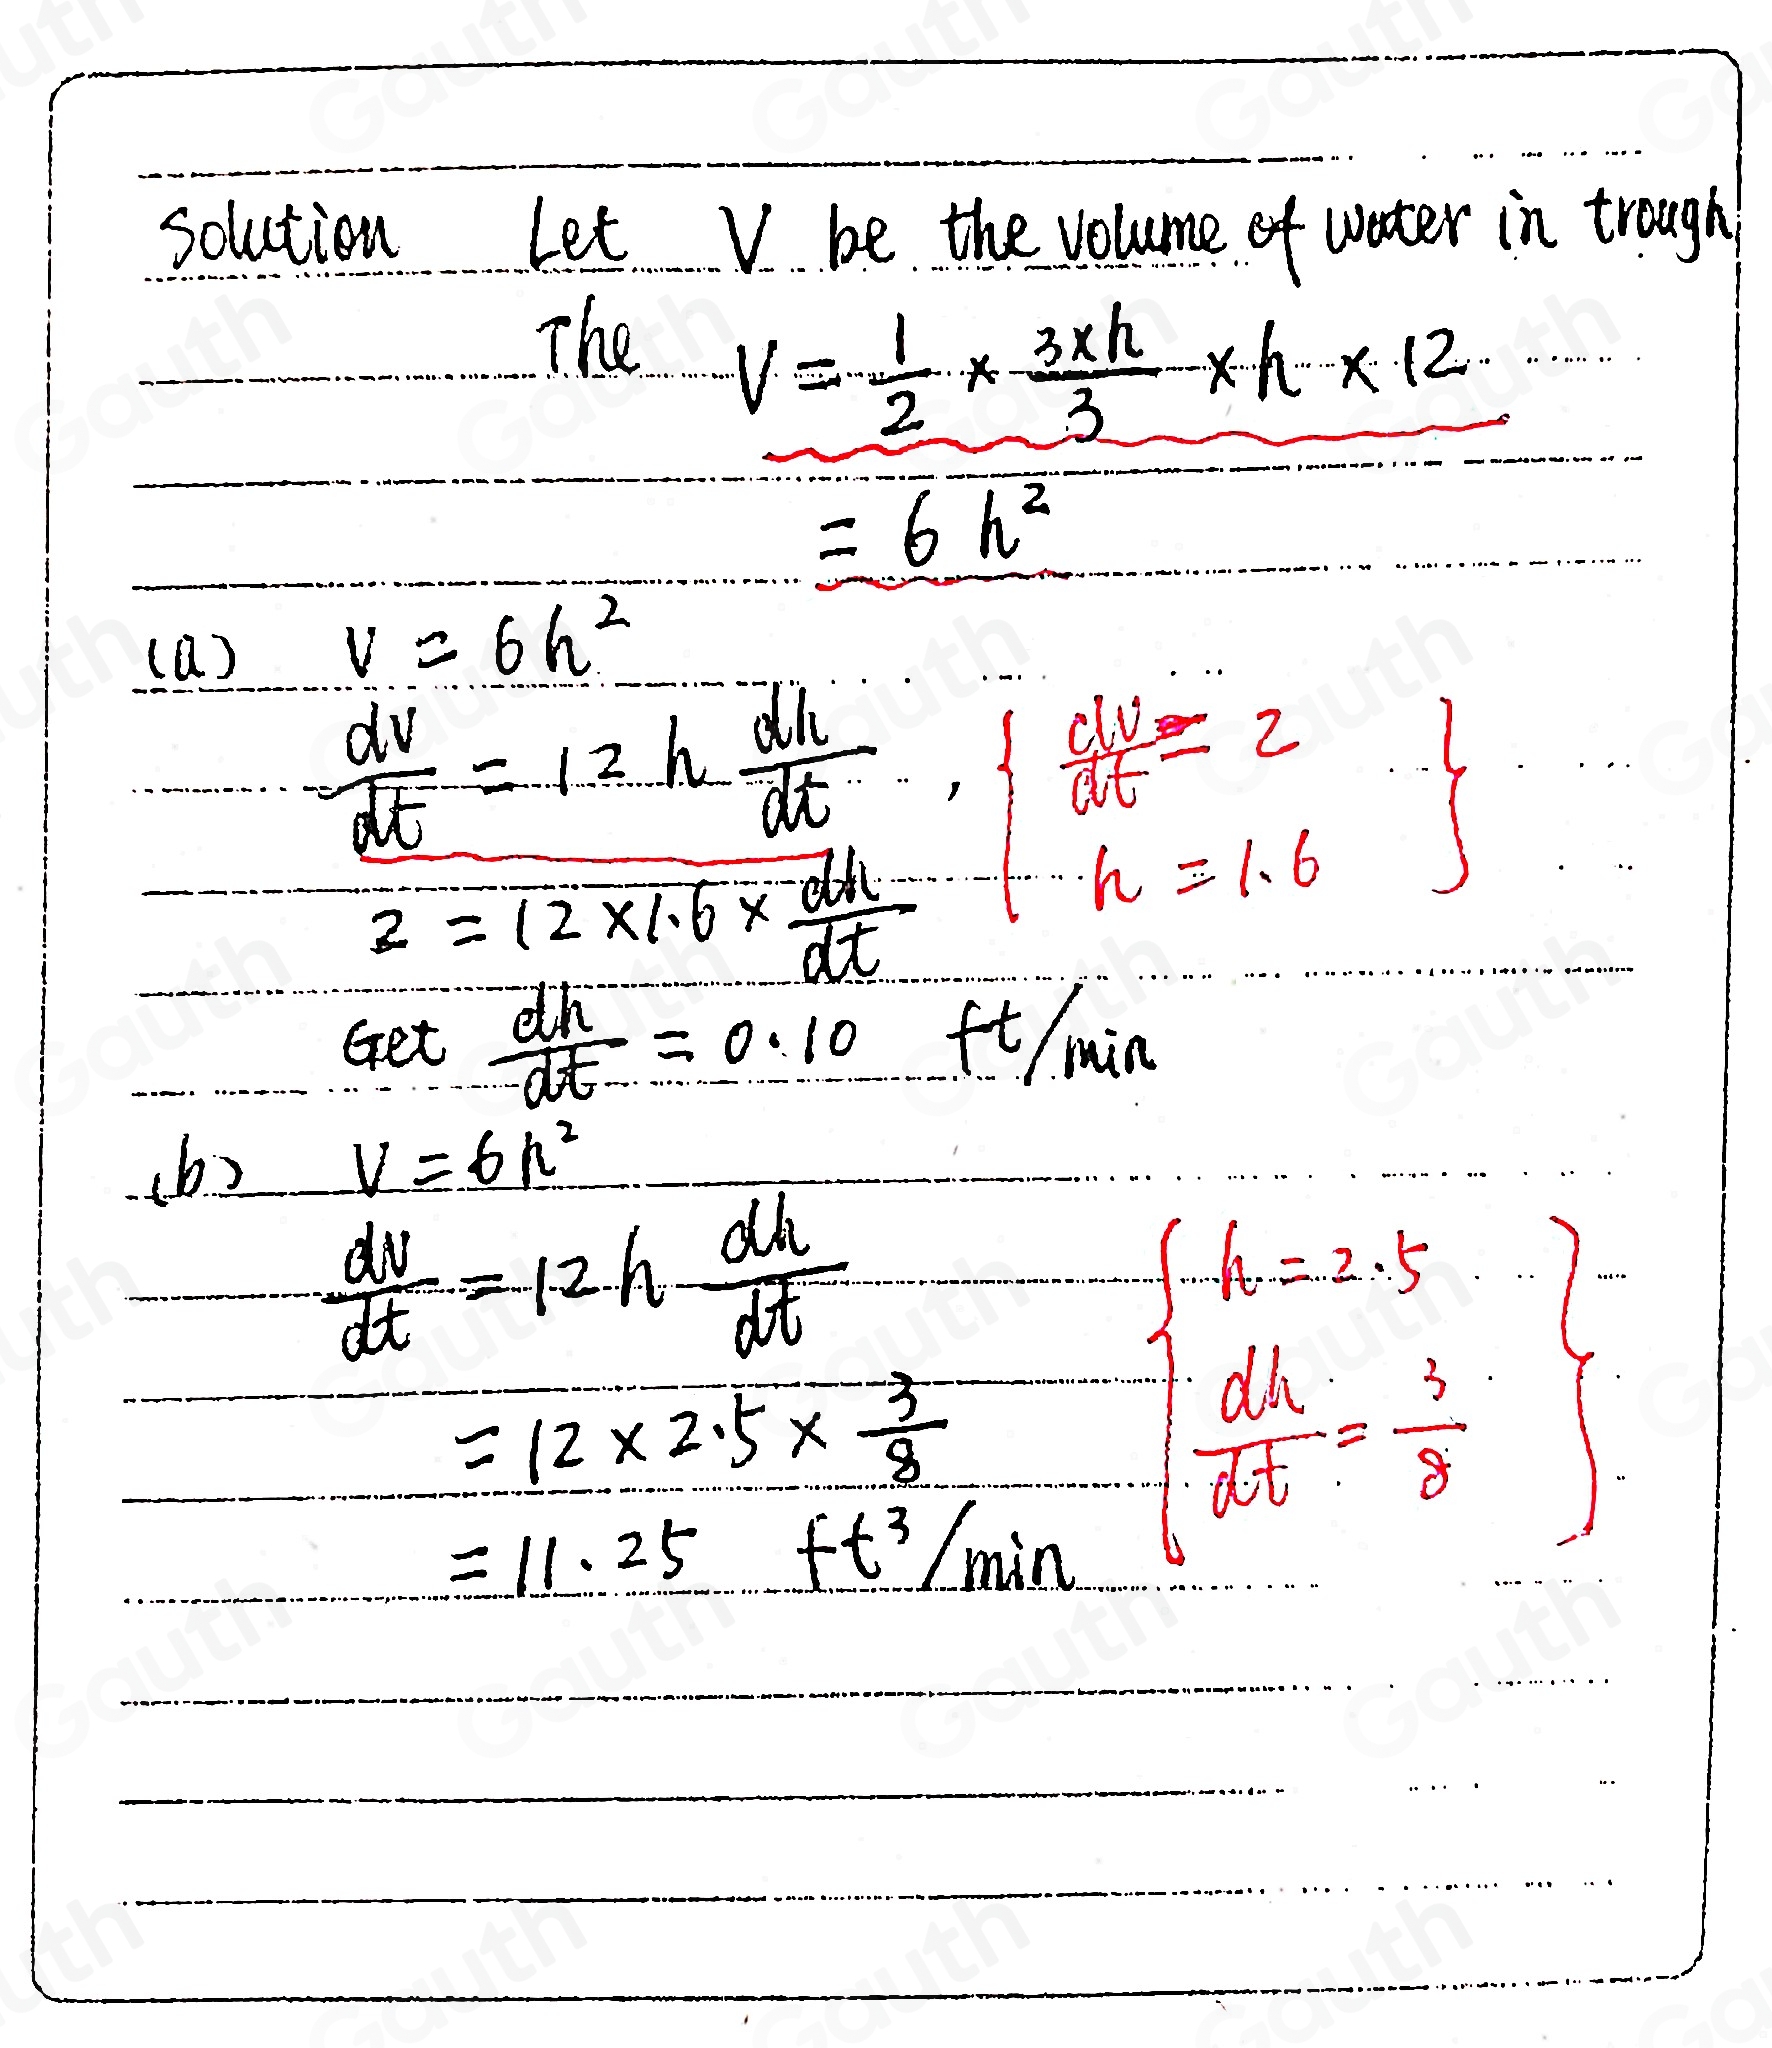 Solution Let V be the volume of water in trough
The V = 1/2 × 3×h/3 × h × 12
= 6 h²
(a) V = 6h²
dv/dt = 12 h dh/dt , { dv/dt = 2
h = 1.6 }
2 = 12 × 1.6 × dh/dt
Get dh/dt = 0.10 ft/min
(b) V = 6h²
dv/dt = 12 h dh/dt { h = 2.5
dh/dt = 3/8 }
= 12 × 2.5 × 3/8
= 11.25 ft³/min
Gauth